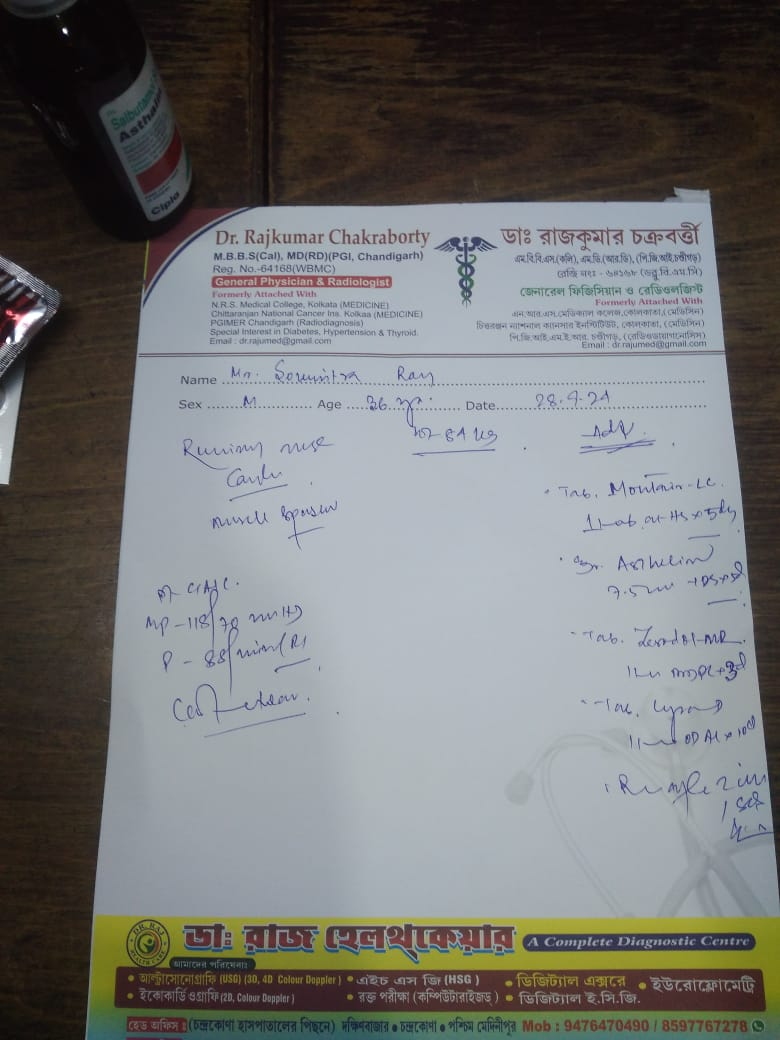 Salbutamol
Asthalin
Cipla
Dr. Rajkumar Chakraborty
M.B.B.S(Cal), MD(RD)(PGI, Chandigarh)
Reg. No.-64168(WBMC)
General Physician & Radiologist
Formerly Attached With
N.R.S. Medical College, Kolkata (MEDICINE)
Chittaranjan National Cancer Ins. Kolkaa (MEDICINE)
PGIMER Chandigarh (Radiodiagnosis)
Special Interest in Diabetes, Hypertension & Thyroid.
Email : dr.rajumed@gmail.com
ডাঃ রাজকুমার চক্রবর্ত্তী
এম.বি.বি.এস.(কলি), এম.ডি.(আর.ডি), (পি.জি.আই,চণ্ডীগড়)
রেজি নংঃ - ৬৪১৬৮ (ডব্লু.বি.এম.সি)
জেনারেল ফিজিসিয়ান ও রেডিওলজিস্ট
Formerly Attached With
এন.আর.এস.মেডিক্যাল কলেজ,কোলকাতা,(মেডিসিন)
চিত্তরঞ্জন ন্যাশনাল ক্যানসার ইনস্টিটিউট, কোলকাতা, (মেডিসিন)
পি.জি.আই.এম.ই.আর. চণ্ডীগড়, (রেডিওডায়াগনোসিস)
Email : dr.rajumed@gmail.com
Name Mr. Soumitra Ray
Sex M Age 36 yr. Date 28.9.24
Running nose
Adv
muscle spasm
118/70 mmHg
P - 88/min
Chest clear
Tab. Montair-LC
1 tab at HS x 5 day
Sy. Asthalin
Tab. Zerodol-MR
Tab. Cyra D
ডাঃ রাজ হেলথকেয়ার
A Complete Diagnostic Centre
DR. RAJ
HEALTH CARE
আমাদের পরিষেবাঃ
• আল্ট্রাসোনোগ্রাফি (USG) (3D, 4D Colour Doppler) • এইচ এস জি (HSG) • ডিজিট্যাল এক্সরে • ইউরোফ্লোমেট্রি
• ইকোকার্ডিওগ্রাফি (2D, Colour Doppler) • রক্ত পরীক্ষা (কম্পিউটারাইজড) • ডিজিট্যাল ই.সি.জি.
হেড অফিস : (চন্দ্রকোণা হাসপাতালের পিছনে) দক্ষিণবাজার • চন্দ্রকোণা • পশ্চিম মেদিনীপুর Mob : 9476470490 / 8597767278